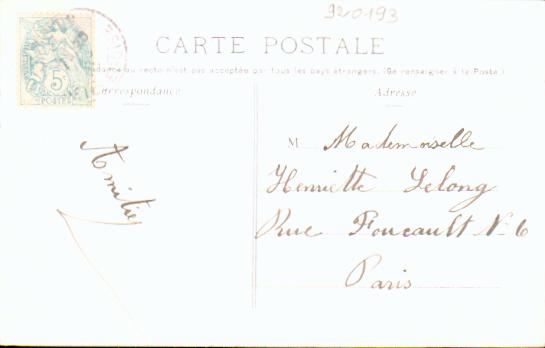 920193
CARTE POSTALE
au recto n'est pas acceptée par tous les pays étrangers. (Se renseigner à la Poste)
Correspondance
Adresse
5c
POSTES
Amitié
M Mademoiselle
Henriette Lelong
Rue Foucault No 6
Paris